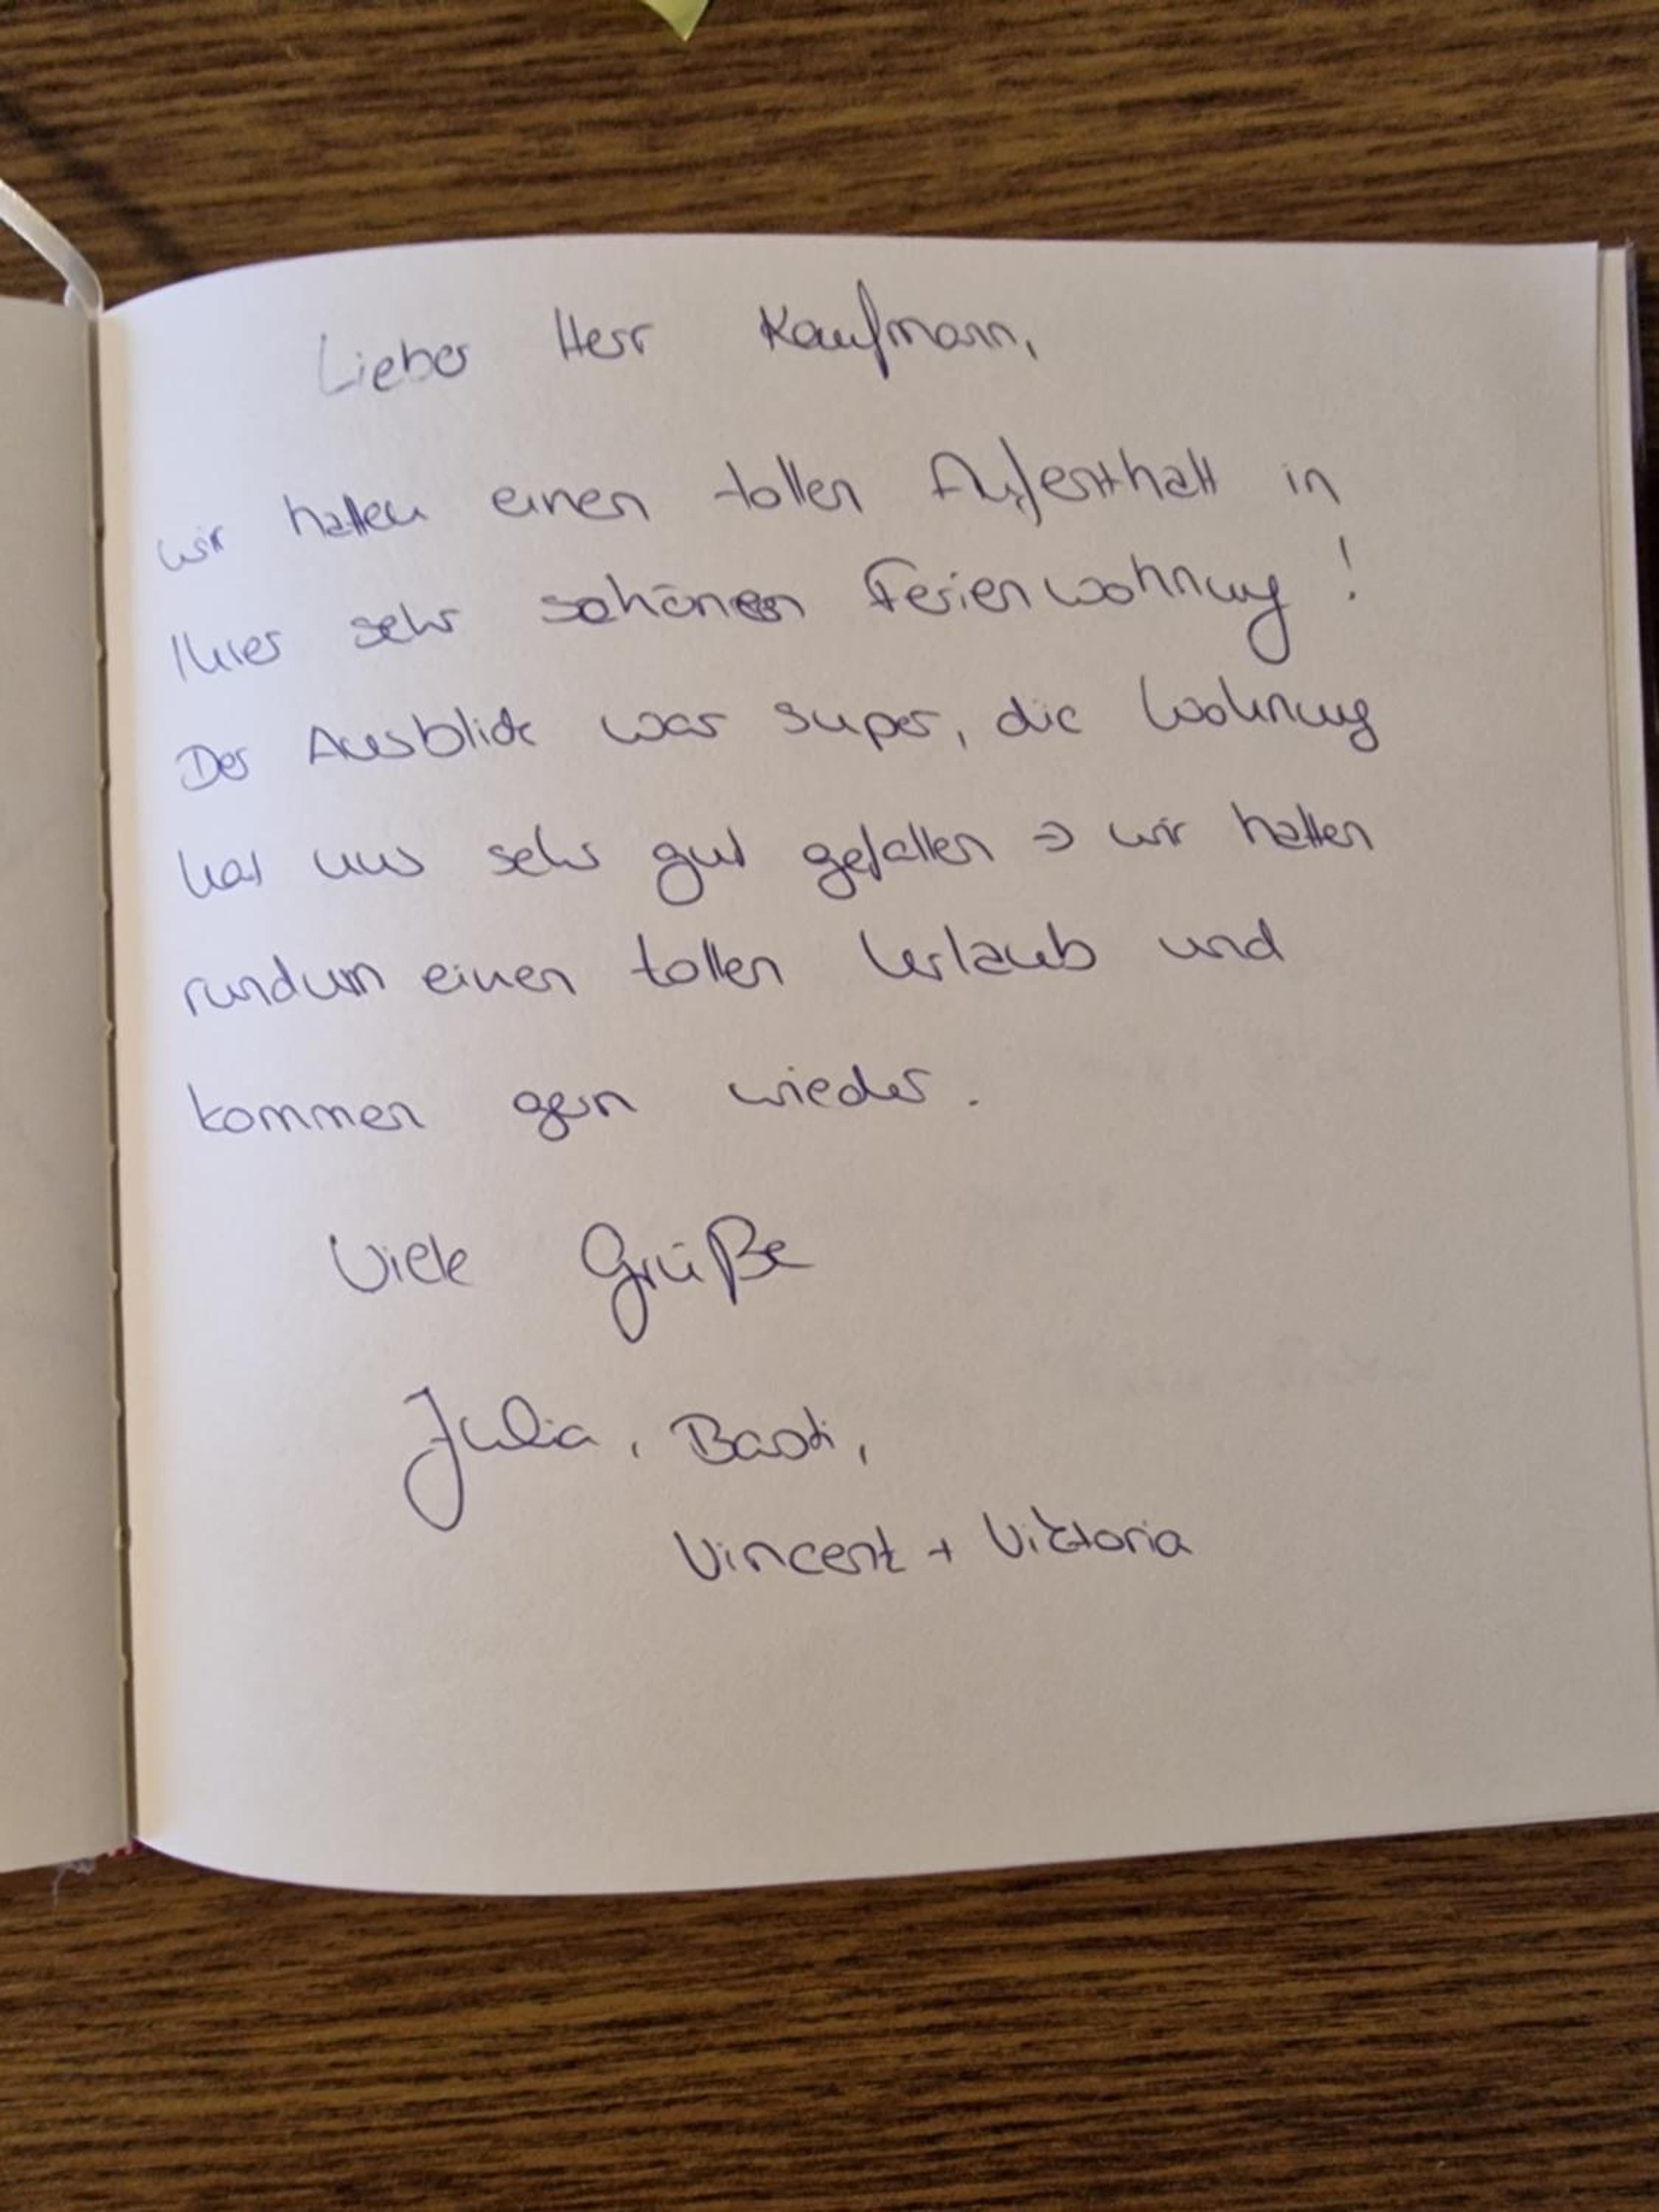 Lieber Herr Kaufmann,
wir hatten einen tollen Aufenthalt in
Ihrer sehr schönen Ferienwohnung!
Der Ausblick war super, die Wohnung
hat uns sehr gut gefallen => wir hatten
rundum einen tollen Urlaub und
kommen gern wieder.
Viele Grüße
Julia, Basti,
Vincent + Viktoria